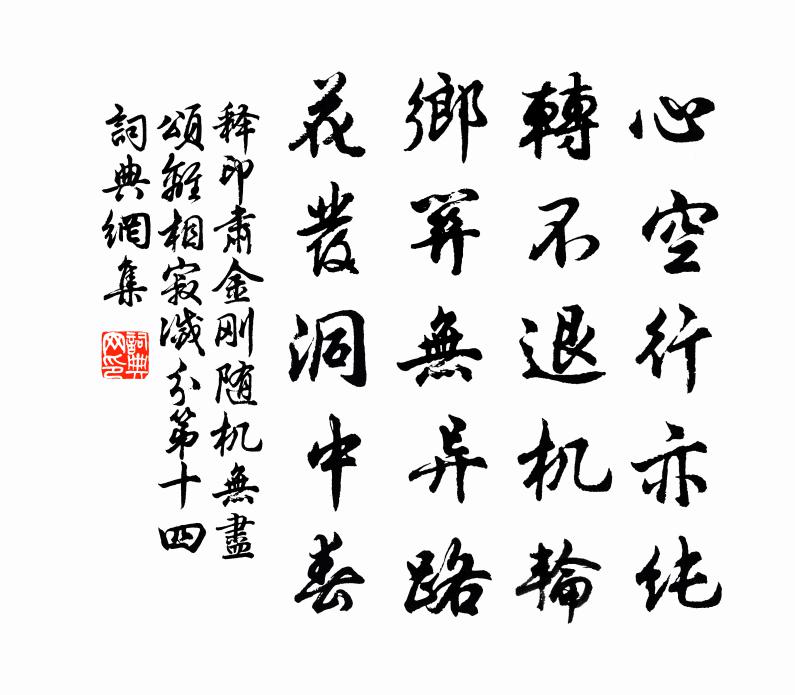 心空行亦纯
轉不退机輪
鄉關無异路
花發洞中春
释印肅金剛随机無盡
頌離相寂滅分第十四
詞典網集
詞典网印